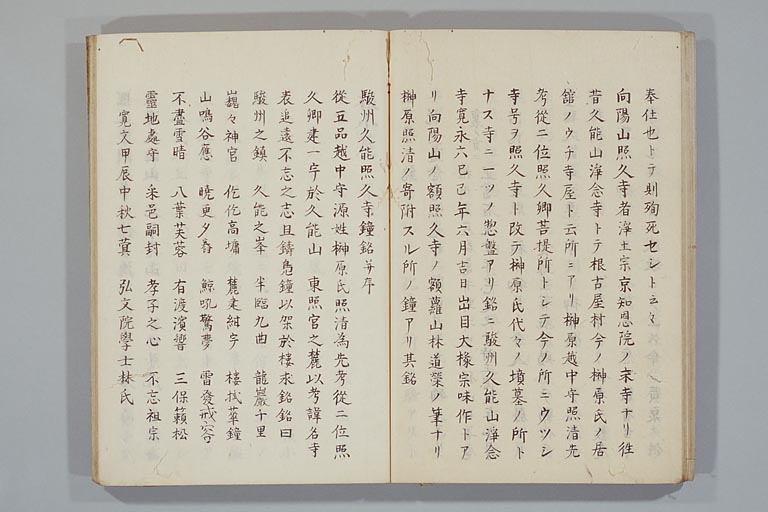 奉仕也トテ則殉死セシト云々
向陽山照久寺者淨土宗京知恩院ノ末寺ナリ往
昔久能山淨念寺トテ根古屋村今ノ榊原氏ノ居
舘ノウチ寺屋ト云所ニアリ榊原越中守照清先
考從二位照久卿菩提所トシテ今ノ所ニウツシ
寺号ヲ照久寺ト改テ榊原氏代々ノ墳墓ノ所ト
ナス寺ニ一ツノ惣盤アリ銘ニ駿州久能山淨念
寺寛永六己巳年六月吉日出目大椽宗味作トア
リ向陽山ノ額照久寺ノ額蘿山林道榮ノ筆ナリ
榊原照清ノ寄附スル所ノ鐘アリ其銘
駿州久能照久寺鐘銘并序
從五品越中守源姓榊原氏照清為先考從二位照
久卿建一宇於久能山 東照宮之麓以考諱名寺
表追遠不忘之志且鑄鳧鐘以架於樓求銘銘曰
駿州之鎮 久能之峯 半臨九曲 龍巖千里
巍々神宮 仡仡高墉 麓建紺宇 樓拭華鐘
山鳴谷應 曉更夕舂 鯨吼驚夢 雷發戒容
不盡雪晴 八葉芙蓉 有渡濱響 三保籟松
靈地處守 采邑嗣封 孝子之心 不忘祖宗
寛文甲辰中秋七蓂 弘文院學士林氏